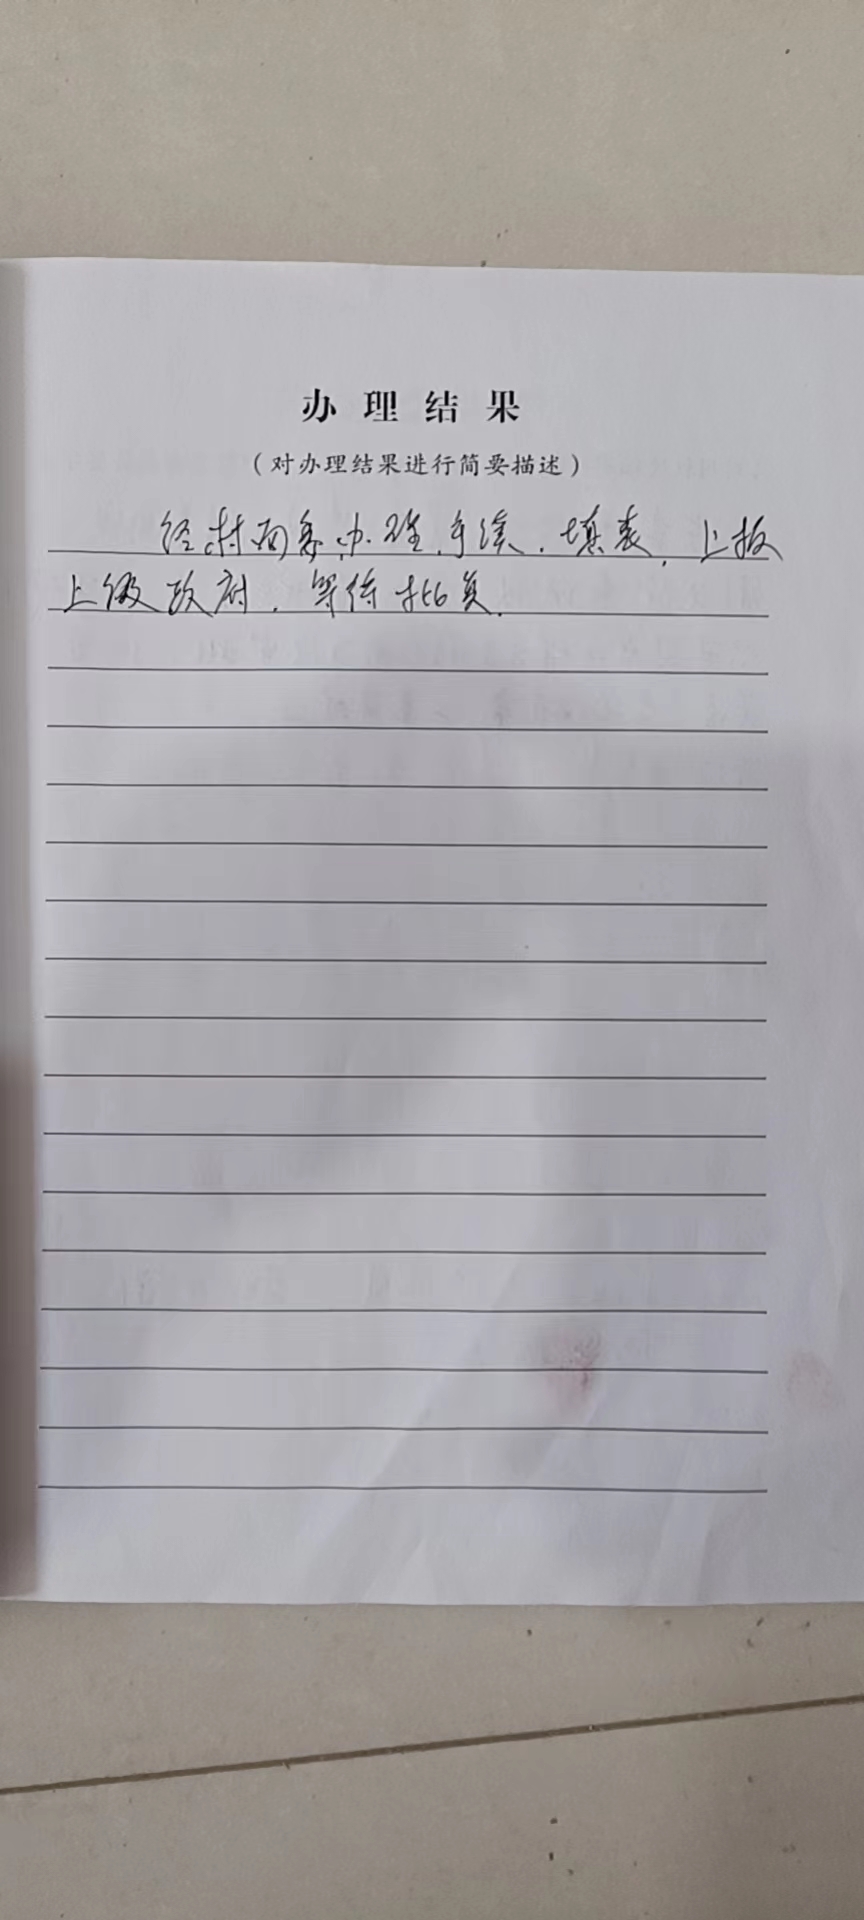 办理结果
（对办理结果进行简要描述）
经村两委办理手续．填表．上报
上级政府．等待批复．